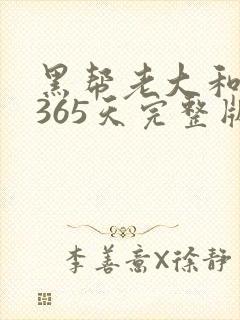 黑帮老大和
365天完整版
李善斋X徐静